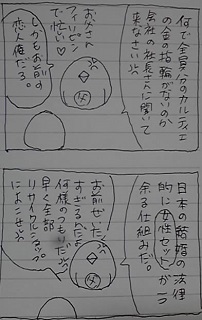 何で全員分のカルティエ
の金の指輪がないのか
会社の社長さんに聞いて
来なさい
お父さん
フィリピン
で忙しい♡
父
しかもお前の
恋人俺だろ。
日本の結婚の法律
的に女性セットが一つ
余る仕組みだ。
お前ぜいたく
すぎるんだよ
何様のつもりだ
早く全部
リサイクルショップ
によこせ
父